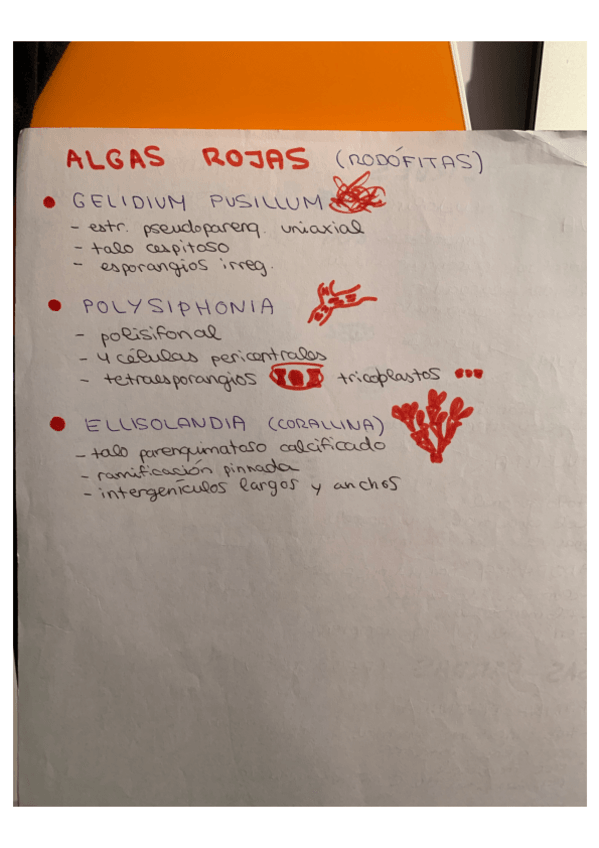 ALGAS ROJAS (RODÓFITAS)
• GELIDIUM PUSILLUM
- estr. pseudoparenq. uniaxial
- talo cespitoso
- esporangios irreg.
• POLYSIPHONIA
- polisifonal
- 4 células pericentrales
- tetraesporangios tricoplastos
• ELLISOLANDIA (CORALLINA)
- talo parenquimatoso calcificado
- ramificación pinnada
- intergenículos largos y anchos